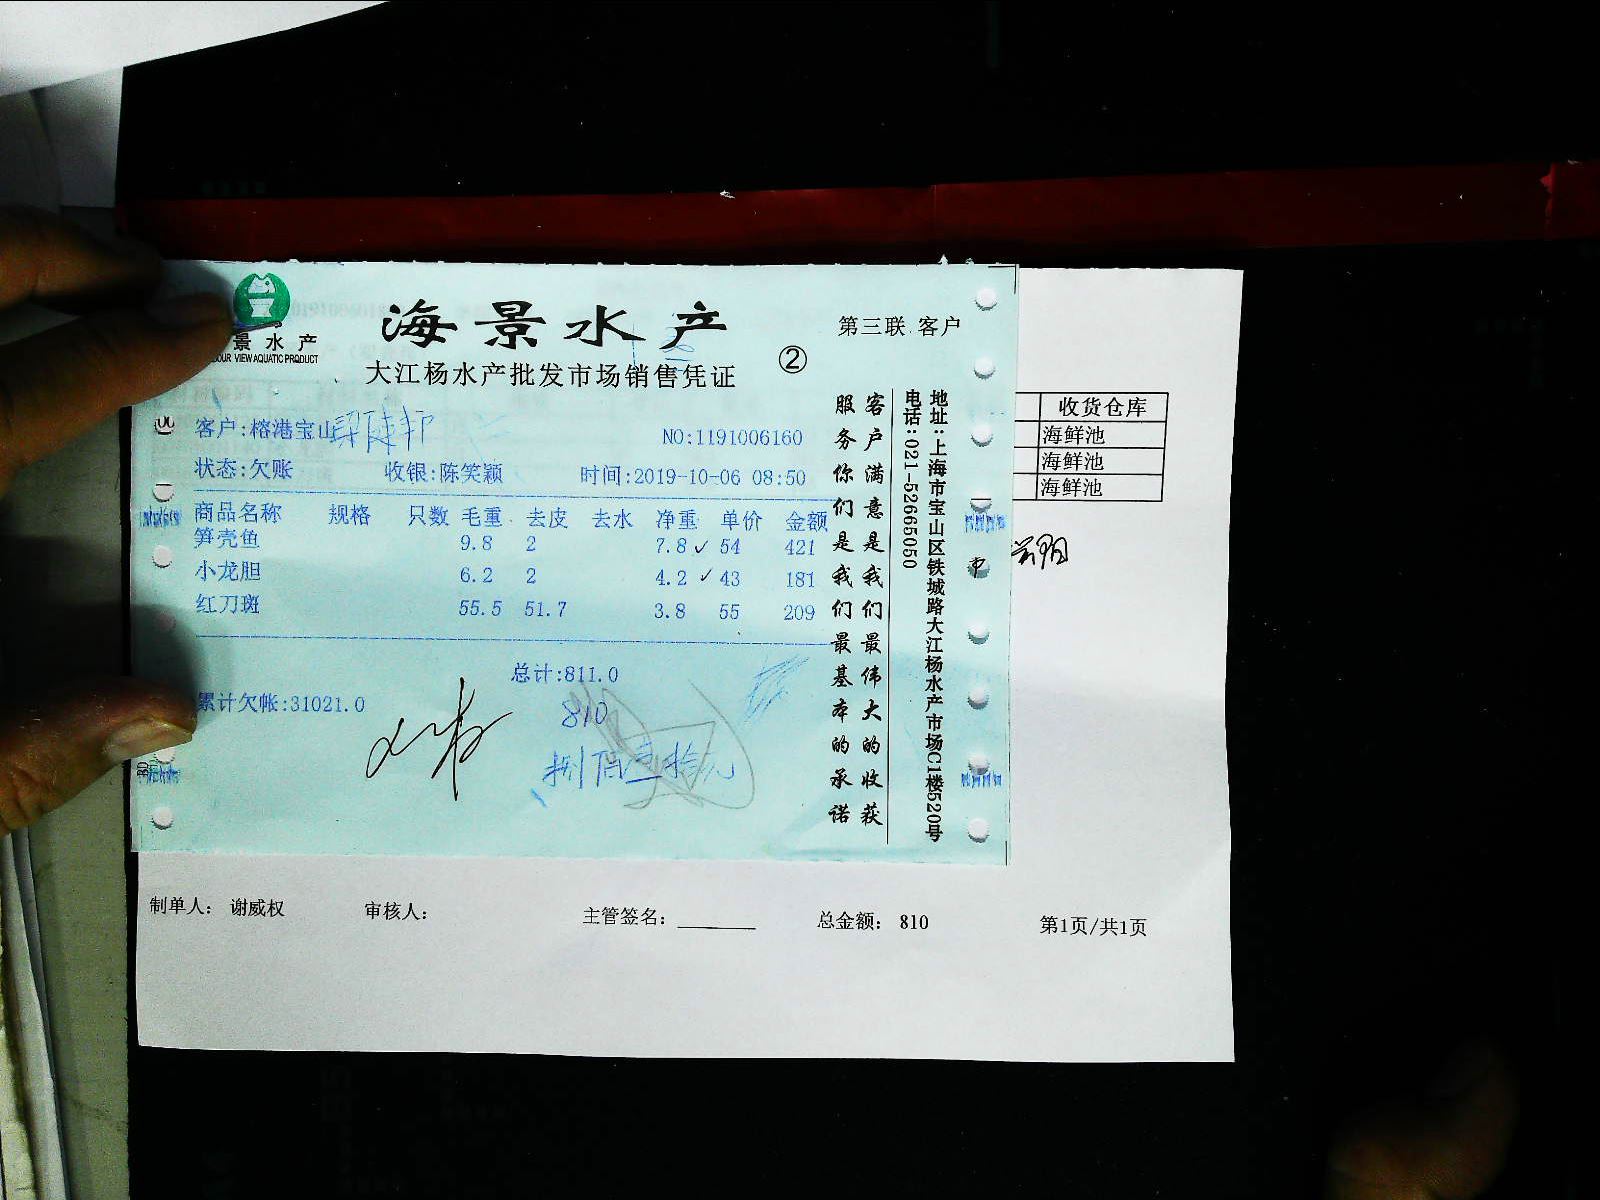 景水产
OUR VIEW AQUATIC PRODUCT
海景水产
大江杨水产批发市场销售凭证
②
第三联 客户
客户:榕港宝山
NO:1191006160
状态:欠账 收银:陈笑颖 时间:2019-10-06 08:50
商品名称 规格 只数 毛重 去皮 去水 净重 单价 金额
笋壳鱼 9.8 2 7.8 ✓ 54 421
小龙胆 6.2 2 4.2 ✓ 43 181
红刀斑 55.5 51.7 3.8 55 209
总计:811.0
累计欠帐:31021.0
810
捌佰壹拾元
客户满意是我们最伟大的收获
服务你们是我们最基本的承诺
地址:上海市宝山区铁城路大江杨水产市场C1楼520号
电话:021-52665050
收货仓库
海鲜池
海鲜池
海鲜池
制单人: 谢威权 审核人: 主管签名: 总金额: 810 第1页/共1页